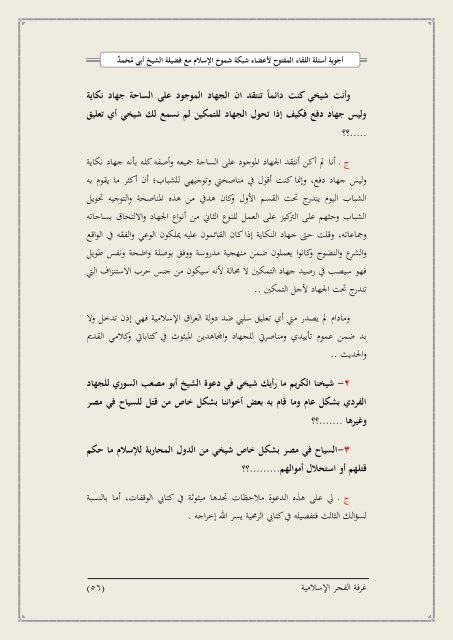 أجوبة أسئلة اللقاء المفتوح لأعضاء شبكة شموخ الإسلام مع فضيلة الشيخ أبي مُحَمدٌ
وأنت شيخي كنت دائماً تنتقد ان الجهاد الموجود على الساحة جهاد نكاية
وليس جهاد دفع فكيف إذا تحول الجهاد للتمكين لم نسمع لك شيخي أي تعليق
.....؟؟
ج . أنا لم أكن أنتقد الجهاد الموجود على الساحة جميعه وأصفه كله بأنه جهاد نكاية
وليس جهاد دفع، وإنما كنت أقول في مناصحتي وتوجيهي للشباب؛ أن أكثر ما يقوم به
الشباب اليوم يندرج تحت القسم الأول وكان هدفي من هذه المناصحة والتوجيه تحويل
الشباب وحثهم على التركيز على العمل للنوع الثاني من أنواع الجهاد والالتحاق بساحاته
وجماعاته، وقلت حتى جهاد النكاية إذا كان القائمون عليه يملكون الوعي والفقه في الواقع
والشرع والنضوج وكانوا يعملون ضمن منهجية مدروسة ووفق بوصلة واضحة ونفس طويل
فهو سيصب في رصيد جهاد التمكين لا محالة لأنه سيكون من جنس حرب الاستنزاف التي
تندرج تحت الجهاد لأجل التمكين ..
ومادام لم يصدر مني أي تعليق سلبي ضد دولة العراق الإسلامية فهي إذن تدخل ولا
بد ضمن عموم تأييدي ومناصرتي للجهاد والمجاهدين المبثوث في كتاباتي وكلامي القديم
والحديث ..
٢- شيخنا الكريم ما رأيك شيخي في دعوة الشيخ أبو مصعب السوري للجهاد
الفردي بشكل عام وما قام به بعض أخواننا بشكل خاص من قتل للسياح في مصر
وغيرها .......؟؟
٣-السياح في مصر بشكل خاص شيخي من الدول المحاربة للإسلام ما حكم
قتلهم أو استحلال أموالهم.........؟؟
ج . لي على هذه الدعوة ملاحظات تجدها مبثوثة في كتابي الوقفات، أما بالنسبة
لسؤالك الثالث فتفصيله في كتابي الرمحية يسر الله إخراجه .
غرفة الفجر الإسلامية
(٥٦)